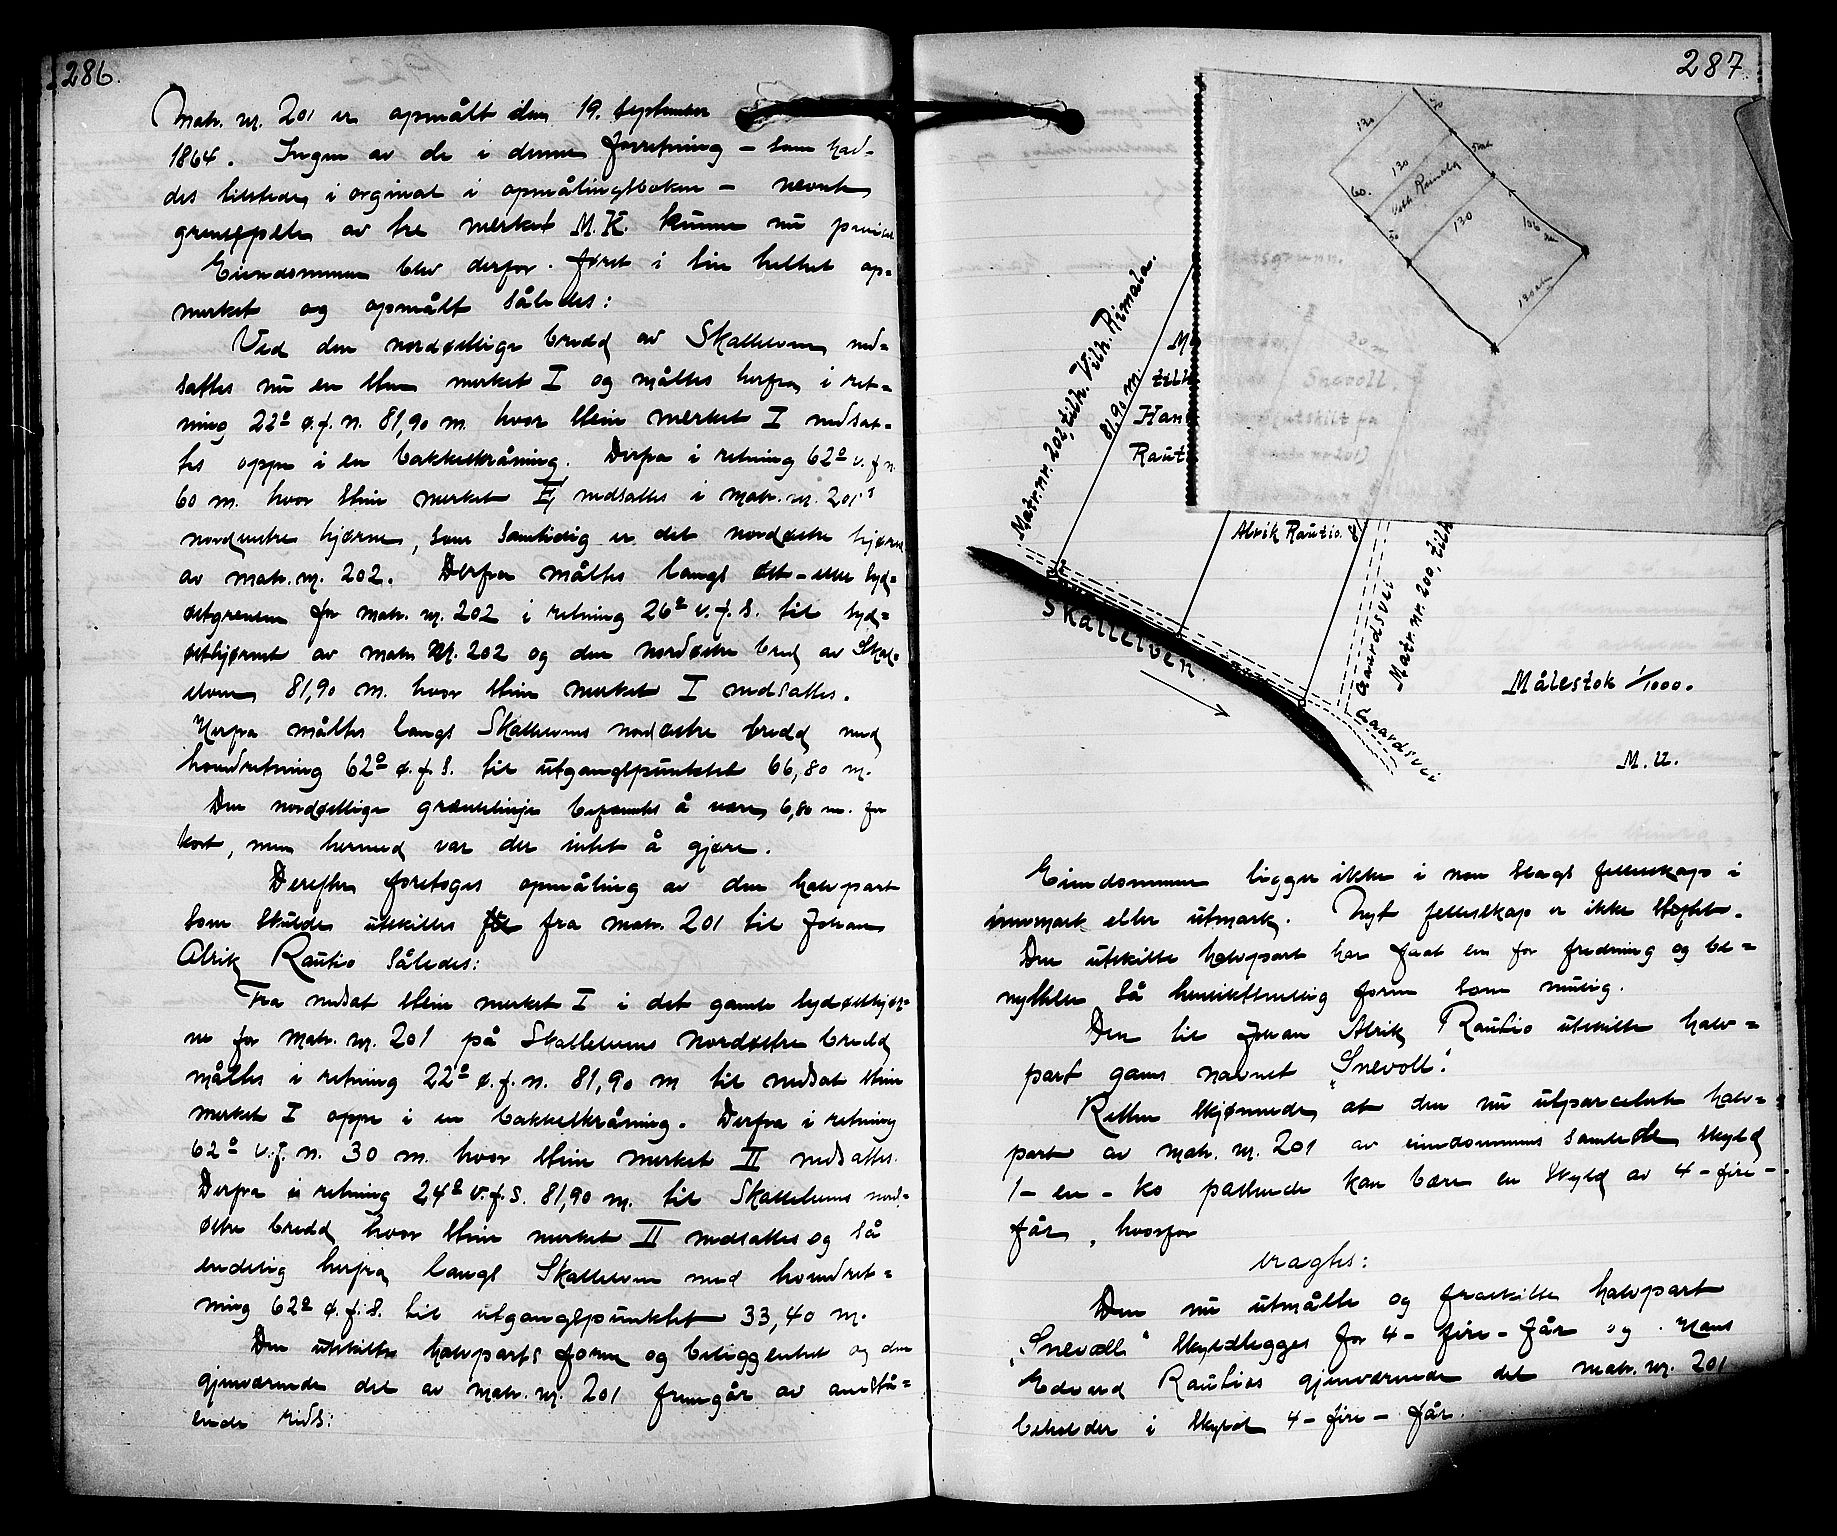 286.
Matr. nr. 201 er opmålt den 19. september
1864. Ingen av de i denne forretning – som had-
des tilstede i orginal i opmålingsboken – nevnte
grensepæle av tre merket M.K. kunne nu
Eiendommen blev derfor. først i sin helhet op-
merket og opmålt således:
Ved den nordøstlige bredd av Skallelven ned-
sattes nu en sten merket I og måltes herfra i ret-
ning 22° ø.f.n. 81,90 m. hvor sten merket I nedsat-
tes oppe i en bakkeskråning. Derfra i retning 62° v.f.n.
60 m. hvor sten merket I nedsattes i matr. nr. 201's
nordvestre hjørne, som samtidig er det nordøstre hjørne
av matr. nr. 202. Derfra måltes langs øst- eller syd-
østgrensen for matr. nr. 202 i retning 26° v.f.s. til syd-
østhjørnet av matr. nr. 202 og den nordøstre bred av Skal-
elven 81,90 m. hvor sten merket I nedsattes.
Herfra måltes langs Skallelvens nordøstre bredd med
hovedretning 62° ø.f.s. til utgangspunktet 66,80 m.
Den nordøstlige grænselinje befantes å være 6,80 m. for
kort, men hermed var der intet å gjøre.
Derefter foretoges opmåling av den halvpart
som skulde utskilles fra matr. 201 til Johan
Alrik Rautio således:
Fra nedsat sten merket I i det gamle sydøsthjør-
ne for matr. nr. 201 på Skallelvens nordøstre bredd
måltes i retning 22° ø.f.n. 81,90 m til nedsat sten
merket I oppe i en bakkeskråning. Derfra i retning
62° v.f.n. 30 m. hvor sten merket II nedsattes.
Derfra i retning 24° v.f.s. 81,90 m. til Skallelvens nord-
østre bredd hvor sten merket II nedsattes og så
endelig herfra langs Skallelven med hovedret-
ning 62° ø.f.s. til utgangspunktet 33,40 m.
Den utskilte halvparts form og beliggenhet og den
gjenværende del av matr. nr. 201 fremgår av anstå-
ende rids:
287
120
130
Vilh. Rimala
60.
130
50
106
Matr. nr. 202, tilh. Vilh. Rimala.
81,90 m.
tilh
Hans
Rauti
20 m
Snevoll.
Alrik Rautio.
Skallelven.
Gaardsvei
Matr. nr. 200, tilh
Gaardsvei
Målestok 1/1000.
M. U.
Eiendommen ligger ikke i noe slags fellesskap i
innmark eller utmark. Nyt fellesskap er ikke stiftet.
Den utskilte halvpart har faat en for fredning og be-
nyttelse så hensiktsmessig form som mulig.
Den til Johan Alrik Rautio utskilte halv-
part gaves navnet "Snevoll".
Retten skjønnede, at den nu utparcelerte halv-
part av matr. nr. 201 av eiendommens samlede skyld
1 – en – ko passende kan bære en skyld av 4 – fire –
får, hvorfor
eragtes:
Den nu utmålte og fraskilte halvpart
"Snevoll" skyldlegges for 4 – fire – får og Hans
Edvard Rautios gjenværende del matr. nr. 201
beholder i skyld 4 – fire – får.